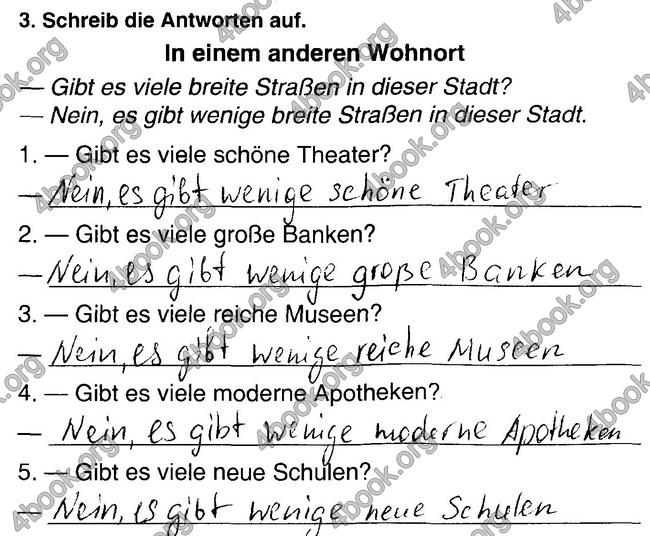 3. Schreib die Antworten auf.
In einem anderen Wohnort
— Gibt es viele breite Straßen in dieser Stadt?
— Nein, es gibt wenige breite Straßen in dieser Stadt.
1. — Gibt es viele schöne Theater?
— Nein, es gibt wenige schöne Theater
2. — Gibt es viele große Banken?
— Nein, es gibt wenige große Banken
3. — Gibt es viele reiche Museen?
— Nein, es gibt wenige reiche Museen
4. — Gibt es viele moderne Apotheken?
— Nein, es gibt wenige moderne Apotheken
5. — Gibt es viele neue Schulen?
— Nein, es gibt wenige neue Schulen
4book.org